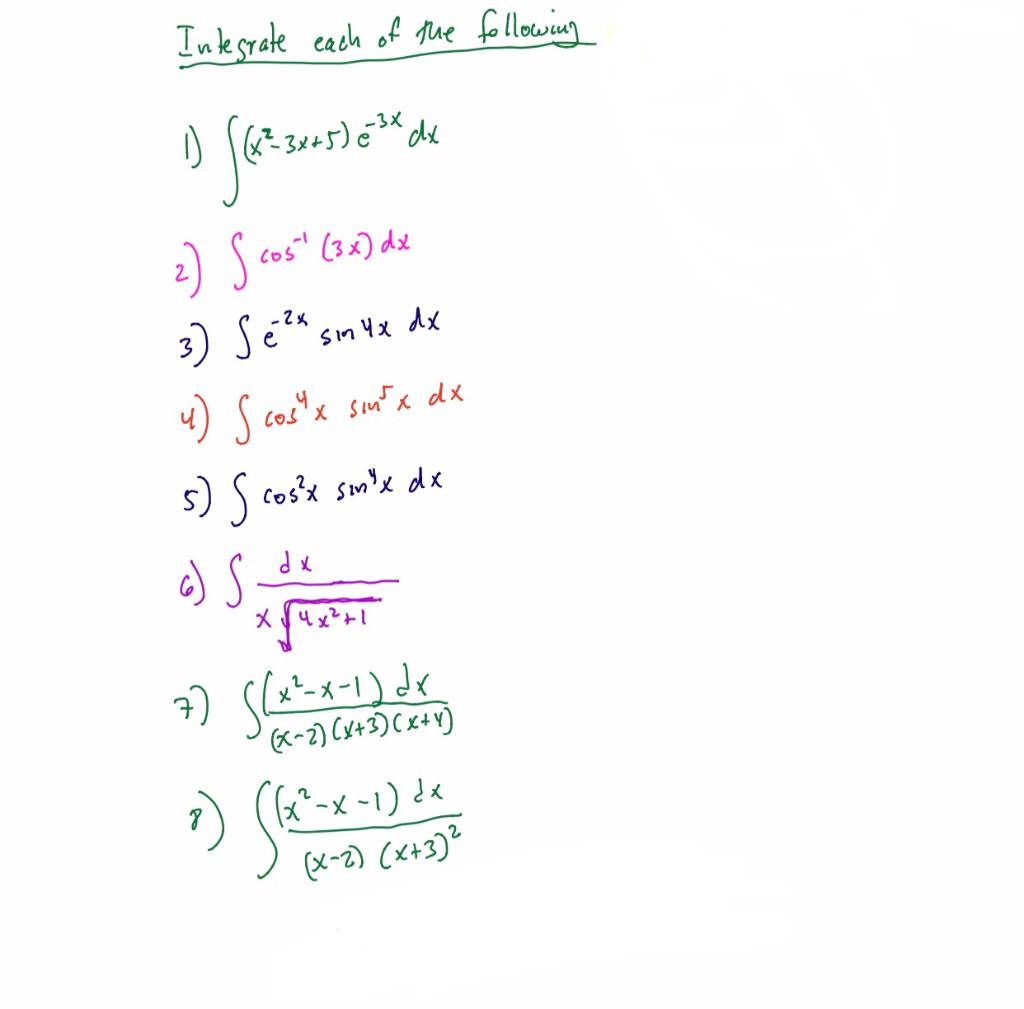 Integrate each of the following
1) ∫(x²-3x+5) e⁻³ˣ dx
2) ∫ cos⁻¹ (3x) dx
3) ∫ e⁻²ˣ sin 4x dx
4) ∫ cos⁴x sin⁵x dx
5) ∫ cos²x sin⁴x dx
6) ∫ dx / x√(4x²+1)
7) ∫ (x²-x-1) dx / (x-2)(x+3)(x+4)
8) ∫ (x²-x-1) dx / (x-2) (x+3)²